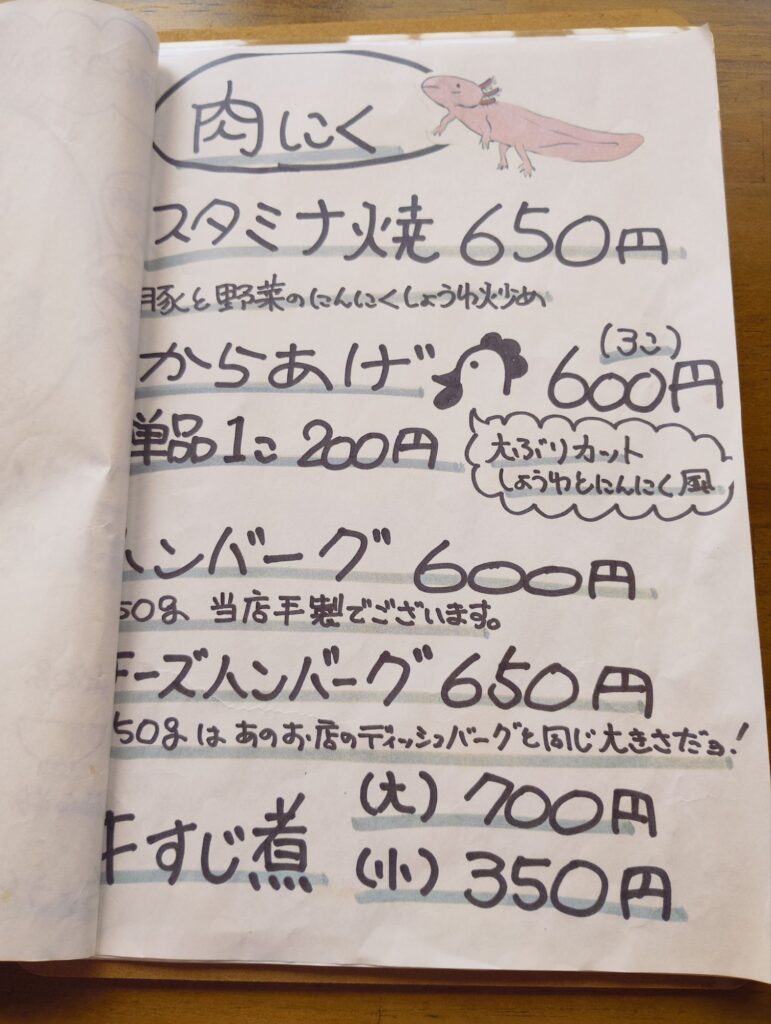 肉にく
スタミナ焼 650円
豚と野菜のにんにくしょうゆ炒め
からあげ (3こ) 600円
単品1こ 200円
大ぶりカット
しょうゆとにんにく風
ハンバーグ 600円
50g 当店手製でございます。
チーズハンバーグ 650円
50gはあのお店のディッシュバーグと同じ大きさだョ!
牛すじ煮 (大) 700円
(小) 350円